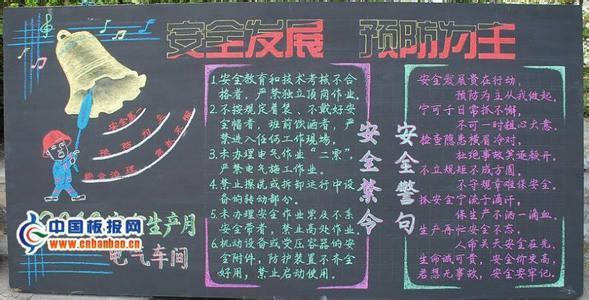 安全发展 预防为主
安全第一
预防为主
综合治理
安全生产月
电气车间
中国板报网
www.cnbanbao.cn
1.安全教育和技术考核不合
格者，严禁独立顶岗作业。
2.不按规定着装、不戴好安
全帽者，班前饮酒者，严
禁进入任何工作现场。
3.未办理电气作业“三票”，
严禁电气施工作业。
4.禁止擦洗或拆卸运行中设
备的转动部分。
5.未办理安全作业票及不系
安全带者，禁止高处作业。
6.机动设备或受压容器的安
全附件，防护装置不齐全
好用，禁止启动使用。
安全禁令
安全警句
安全发展贵在行动，
预防为主从我做起。
宁可千日常抓不懈，
不可一时粗心大意。
检查隐患横眉冷对，
杜绝事故笑逐颜开。
不立规矩不成方圆，
不守规章难保安全。
抓安全宁流千滴汗，
保生产不洒一滴血。
生产再忙安全不忘，
人命关天安全在先。
生命诚可贵，安全价更高，
若想无事故，安全要牢记。